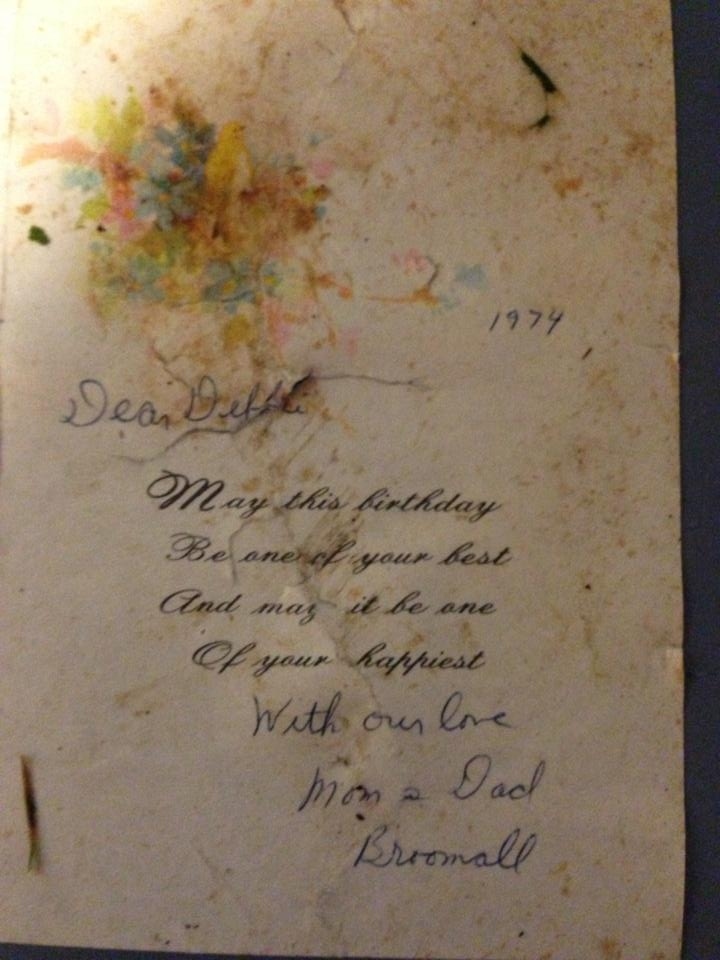 1974
Dear Debbie
May this birthday
Be one of your best
And may it be one
Of your happiest
With our love
Mom & Dad
Broomall